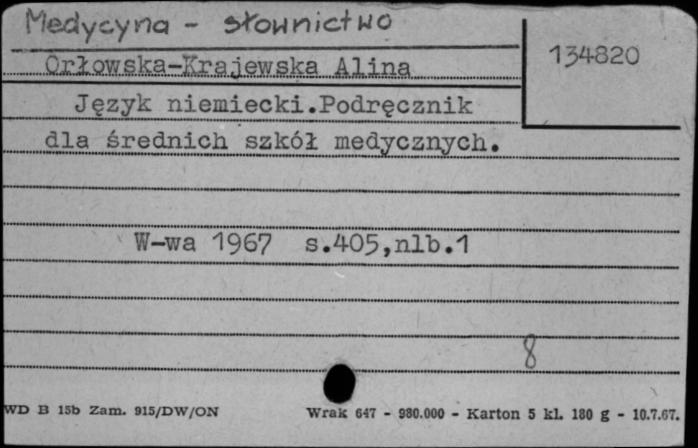 Medycyna - słownictwo
134820
Orłowska-Krajewska Alina
Język niemiecki.Podręcznik
dla średnich szkół medycznych.
W-wa 1967 s.405,nlb.1
8
WD B 15b Zam. 915/DW/ON
Wrak 647 - 980.000 - Karton 5 kl. 180 g - 10.7.67.